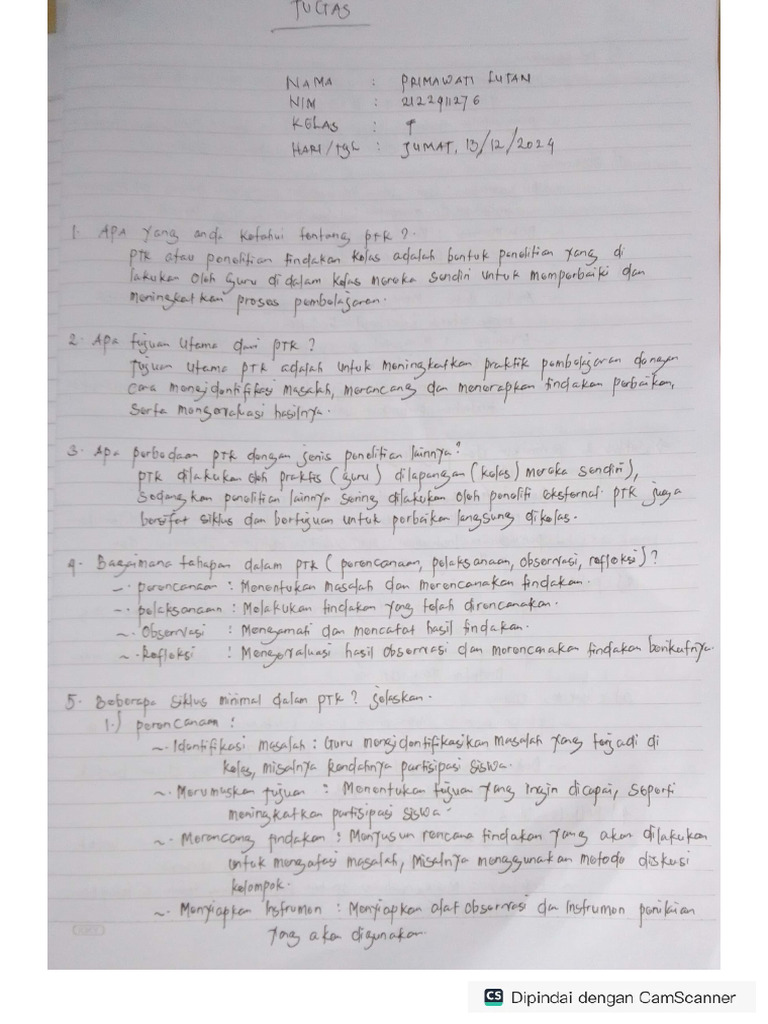 TUGAS
NAMA : PRIMAWATI LUTAN
NIM : 2122911276
KELAS : 9
HARI/TGL : JUMAT, 13/12/2024
1. Apa yang anda ketahui tentang PTK?
PTK atau penelitian tindakan kelas adalah bentuk penelitian yang di
lakukan oleh guru di dalam kelas mereka sendiri untuk memperbaiki dan
meningkatkan proses pembelajaran.
2. Apa tujuan utama dari PTK?
Tujuan utama PTK adalah untuk meningkatkan praktik pembelajaran dengan
cara mengidentifikasi masalah, merancang dan menerapkan tindakan perbaikan,
serta mengevaluasi hasilnya.
3. Apa perbedaan PTK dengan jenis penelitian lainnya?
PTK dilakukan oleh praktis (guru) dilapangan (kelas) mereka sendiri),
sedangkan penelitian lainnya sering dilakukan oleh peneliti eksternal. PTK juga
bersifat siklus dan bertujuan untuk perbaikan langsung dikelas.
4. Bagaimana tahapan dalam PTK (perencanaan, pelaksanaan, observasi, refleksi)?
~. perencanaan : Menentukan masalah dan merencanakan tindakan.
~. pelaksanaan : Melakukan tindakan yang telah direncanakan.
~. Observasi : Mengamati dan mencatat hasil tindakan.
~. Refleksi : Mengevaluasi hasil observasi dan merencanakan tindakan berikutnya.
5. Beberapa siklus minimal dalam PTK? jelaskan.
1.) perencanaan :
~. Identifikasi masalah : Guru mengidentifikasikan masalah yang terjadi di
kelas, misalnya rendahnya partisipasi siswa.
~. Merumuskan tujuan : Menentukan tujuan yang ingin dicapai, seperti
meningkatkan partisipasi siswa.
~. Merancang tindakan : Menyusun rencana tindakan yang akan dilakukan
untuk mengatasi masalah, misalnya menggunakan metode diskusi
kelompok.
~. Menyiapkan Instrumen : Menyiapkan alat observasi dan instrumen penilaian
yang akan digunakan.
CS Dipindai dengan CamScanner